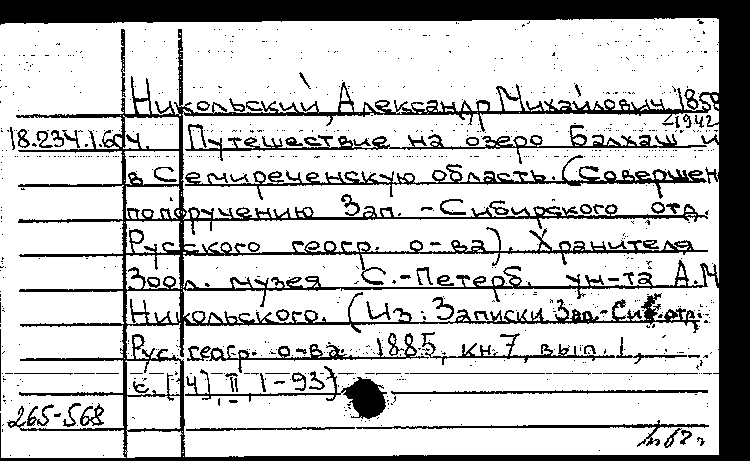 Никольский, Александр Михайлович, 1858
-1942
18.234.1.604. Путешествие на озеро Балхаш и
в Семиреченскую область. (Совершен
по поручению Зап. -Сибирского отд.
Русского геогр. о-ва). Хранителя
Зоол. музея С.-Петерб. ун-та А.М
Никольского. (Из: Записки Зап.-Сиб. отд.
Рус. геогр. о-ва. 1885, кн. 7, вып. 1,
с. [4], II, 1-93)
265-568